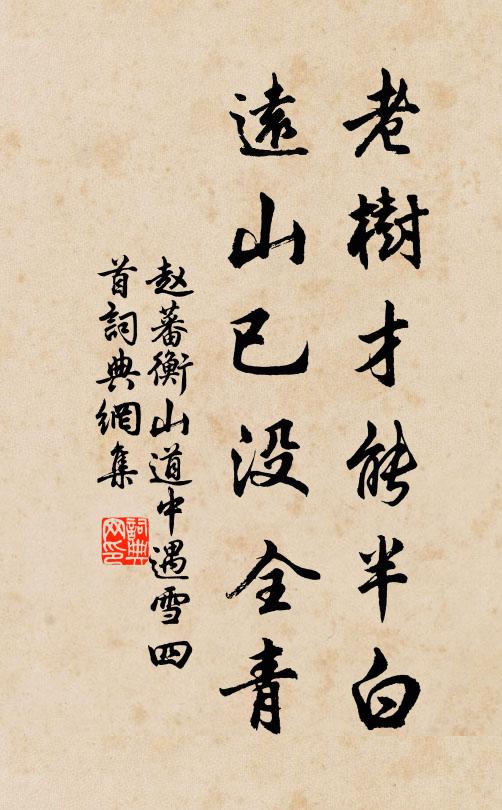 老樹才能半白
遠山已没全青
赵蕃衡山道中遇雪四
首詞典網集
詞典
网印